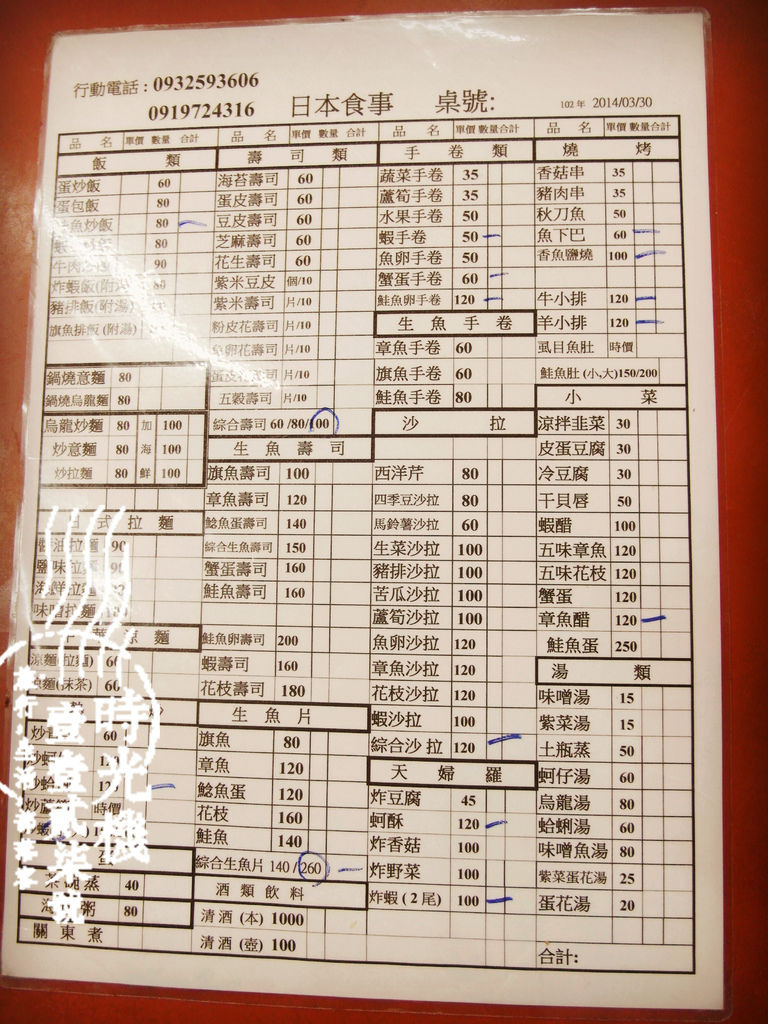 行動電話 : 0932593606
0919724316 日本食事 桌號:
102年 2014/03/30
品 名 單價 數量 合計
飯 類
蛋炒飯 60
蛋包飯 80
魚炒飯 80
80
牛肉 90
炸蝦飯(附 80
豬排飯(附湯)
旗魚排飯 (附湯)
鍋燒意麵 80
鍋燒烏龍麵 80
烏龍炒麵 80 加 100
炒意麵 80 海 100
炒拉麵 80 鮮 100
日 式 拉 麵
醬油拉麵 90
鹽味拉麵 90
海鮮拉麵
味噌拉麵
涼麵
涼麵(拉麵) 60
涼麵(抹茶) 60
炒
60
時價
茶碗蒸 40
粥 80
關 東 煮
品 名 單價 數量 合計
壽 司 類
海苔壽司 60
蛋皮壽司 60
豆皮壽司 60
芝麻壽司 60
花生壽司 60
紫米豆皮 個/10
紫米壽司 片/10
粉皮花壽司 片/10
魚卵花壽司 片/10
蛋皮花壽司 片/10
五穀壽司 片/10
綜合壽司 60 /80/100
生 魚 壽 司
旗魚壽司 100
章魚壽司 120
鯰魚蛋壽司 140
綜合生魚壽司 150
蟹蛋壽司 160
鮭魚壽司 160
鮭魚卵壽司 200
蝦壽司 160
花枝壽司 180
生 魚 片
旗魚 80
章魚 120
鯰魚蛋 120
花枝 160
鮭魚 140
綜合生魚片 140 /260
酒 類 飲 料
清酒 (本) 1000
清酒 (壺) 100
品 名 單價 數量合計
手 卷 類
蔬菜手卷 35
蘆筍手卷 35
水果手卷 50
蝦手卷 50
魚卵手卷 50
蟹蛋手卷 60
鮭魚卵手卷 120
生 魚 手 卷
章魚手卷 60
旗魚手卷 60
鮭魚手卷 80
沙 拉
西洋芹 80
四季豆沙拉 80
馬鈴薯沙拉 60
生菜沙拉 100
豬排沙拉 100
苦瓜沙拉 100
蘆筍沙拉 100
魚卵沙拉 120
章魚沙拉 120
花枝沙拉 120
蝦沙拉 100
綜合沙拉 120
天 婦 羅
炸豆腐 45
蚵酥 120
炸香菇 100
炸野菜 100
炸蝦 ( 2 尾) 100
品 名 單價 數量合計
燒 烤
香菇串 35
豬肉串 35
秋刀魚 50
魚下巴 60
香魚鹽燒 100
牛小排 120
羊小排 120
虱目魚肚 時價
鮭魚肚 (小,大)150/200
小 菜
涼拌韭菜 30
皮蛋豆腐 30
冷豆腐 30
干貝唇 50
蝦醋 100
五味章魚 120
五味花枝 120
蟹蛋 120
章魚醋 120
鮭魚蛋 250
湯 類
味噌湯 15
紫菜湯 15
土瓶蒸 50
蚵仔湯 60
烏龍湯 80
蛤蜊湯 60
味噌魚湯 80
紫菜蛋花湯 25
蛋花湯 20
合計:
時光機
壹堂貳柒號